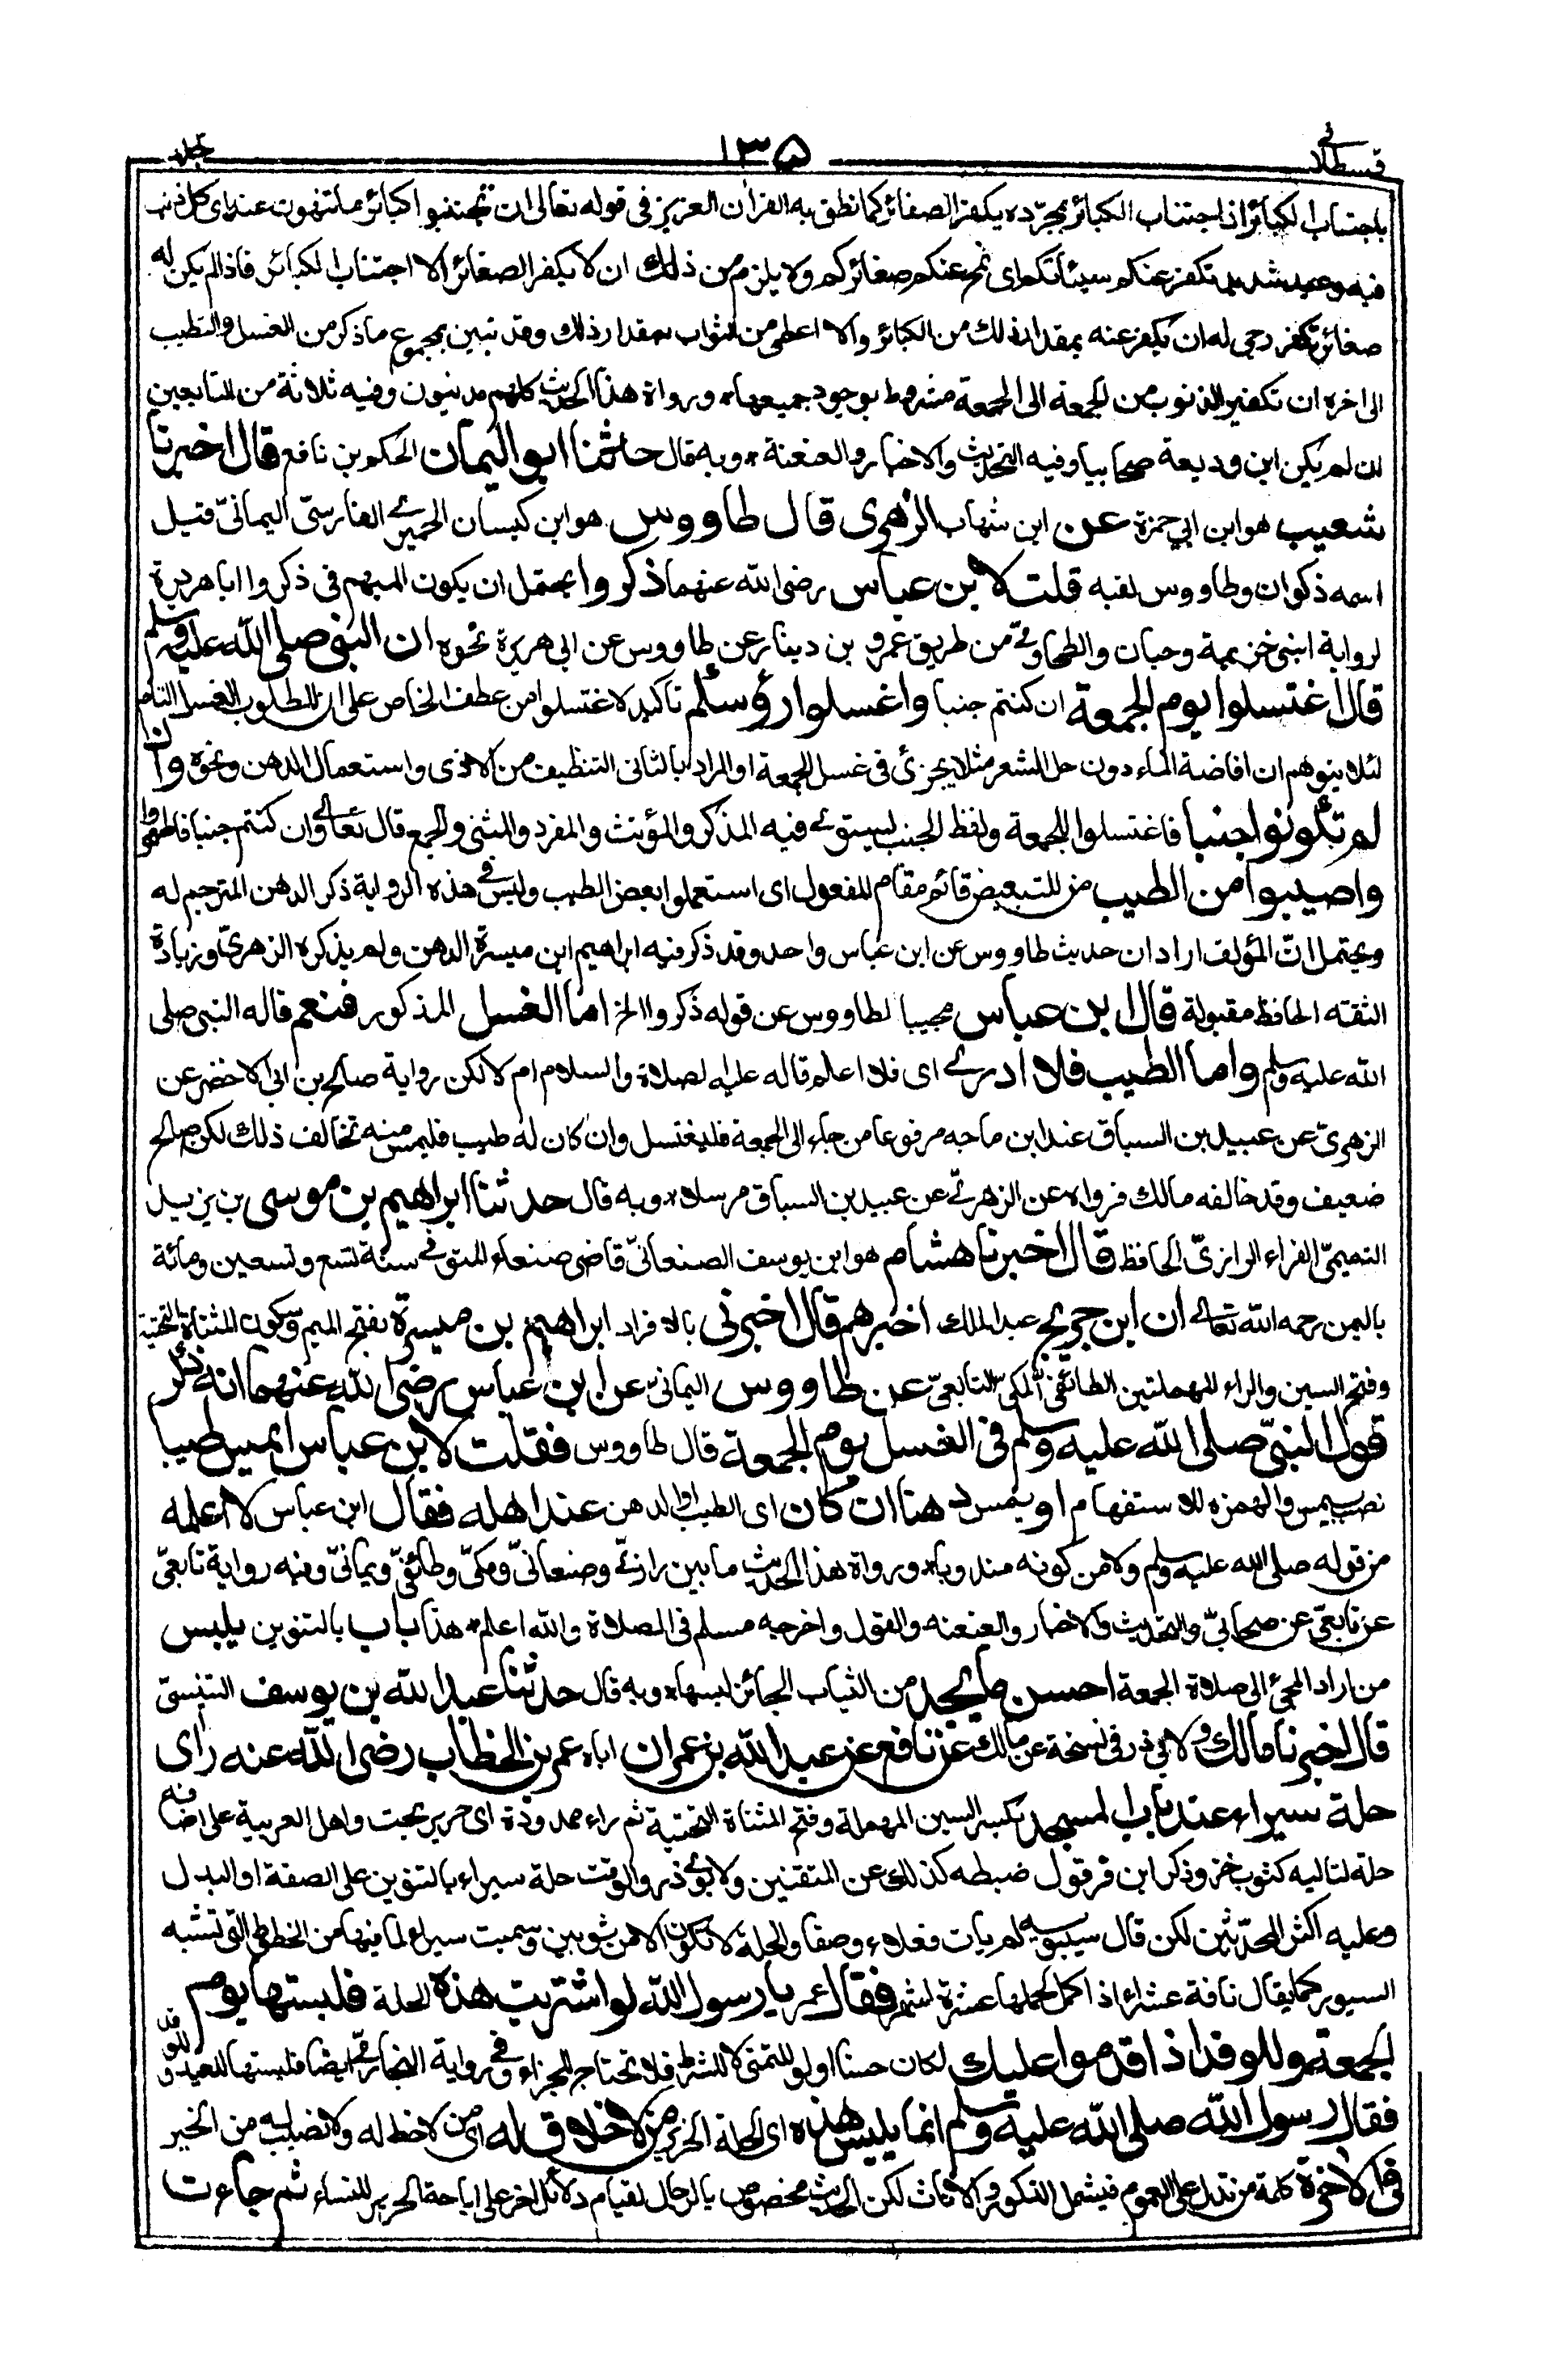 قسطلانی ۱۳۵ جلد
باجتناب الكبائر اذ اجتناب الكبائر بمجرده يكفر الصغائر كما نطق به القرآن العزيز فى قوله تعالى ان تجتنبوا كبائر ما تنهون عنه اى كل ذنب
فيه وعيد شديد نكفر عنكم سيئاتكم اى نمح عنكم صغائركم ولا يلزم من ذلك ان لا يكفر الصغائر الا اجتناب الكبائر فاذا لم يكن له
صغائر تكفر رجى له ان يكفر عنه بمقدار ذلك من الكبائر والا اعطى من الثواب بمقدار ذلك وقد تبين بمجموع ما ذكر من الغسل والتطيب
الى اخره ان تكفير الذنوب من الجمعة الى الجمعة مشروط بوجود جميعها * ورواة هذا الحديث كلهم مدنيون وفيه ثلاثة من التابعين
ان لم يكن ابن وديعة صحابيا وفيه التحديث والاخبار والعنعنة * وبه قال حدثنا ابو اليمان الحكم بن نافع قال اخبرنا
شعيب هو ابن ابي حمزة عن ابن شهاب الزهرى قال طاووس هو ابن كيسان الحميرے الفارسىّ اليمانىّ قيل
اسمه ذكوان وطاووس لقبه قلت لابن عباس رضى الله عنهما ذكروا يحتمل ان يكون المبهم فى ذكروا ابا هريرة
لرواية ابنى خزيمة وحبان والطحاوىّ من طريق عمرو بن دينار عن طاووس عن ابى هريرة نحوه ان النبى صلى الله عليه وسلم
قال اغتسلوا يوم الجمعة ان كنتم جنبا واغسلوا رؤسكم تاكيد لاغتسلوا من عطف الخاص على ان المطلوب الغسل التام
لئلا يتوهم ان افاضة الماء دون حل الشعر مثلا يجزئ فى غسل الجمعة او المراد بالثانى التنظيف من الاذى واستعمال الدهن ونحوه وان
لم تكونوا جنبا فاغتسلوا للجمعة ولفظ الجنب يستوے فيه المذكر والمؤنث والمفرد والمثنى والجمع قال تعالى وان كنتم جنبا فاطهروا
واصيبوا من الطيب من للتبعيض قائم مقام المفعول اى استعملوا بعض الطيب وليس فى هذه الرواية ذكر الدهن المترجم له
ويحتمل انّ المؤلف اراد ان حديث طاووس عن ابن عباس واحد وقد ذكر فيه ابراهيم ابن ميسرة الدهن ولم يذكره الزهرىّ وزيادة
الثقته الحافظ مقبولة قال ابن عباس مجيبا لطاووس عن قوله ذكروا الخ اما الغسل المذكور فنعم قاله النبى صلى
الله عليه وسلم واما الطيب فلا ادرے اى فلا اعلم قاله عليه الصلاة والسلام ام لا لكن رواية صالح بن ابى الاخضر عن
الزهرىّ عن عبيد بن السباق عند ابن ماجه مرفوعا من جاء الى الجمعة فليغتسل وان كان له طيب فليمس منه تخالف ذلك لكن صالح
ضعيف وقد خالفه مالك فرواه عن الزهرىّ عن عبيد بن السباق مرسلا * وبه قال حدثنا ابراهيم بن موسى بن يزيد
التميمىّ الفراء الرازىّ الحافظ قال اخبرنا هشام هو ابن يوسف الصنعانىّ قاضى صنعاء المتوفى سنة تسع وتسعين ومائة
باليمن رحمه الله تعالى ان ابن جريج عبد الملك اخبرهم قال اخبرنى بالافراد ابراهيم بن ميسرة بفتح الميم وسكون المثناة التحتية
وفتح السين والراء المهملتين الطائفىّ المكىّ التابعىّ عن طاووس اليمانىّ عن ابن عباس رضى الله عنهما انه ذكر
قول النبىّ صلى الله عليه وسلم فى الغسل يوم الجمعة قال طاووس فقلت لابن عباس ايمس طيبا
نصب بيمس والهمزه للاستفهام او يمس دهنا ان كان اى الطيب او الدهن عند اهله فقال ابن عباس لا اعلمه
من قوله صلى الله عليه وسلم ولا من كونه مندوبا * ورواة هذا الحديث ما بين رازىّ وصنعانىّ ومكىّ وطائفىّ ويمانىّ وفيه رواية تابعىّ
عن تابعىّ عن صحابىّ والتحديث والاخبار والعنعنه والقول واخرجه مسلم فى الصلاة والله اعلم * هذا باب بالتنوين يلبس
من اراد المجئ الى صلاة الجمعة احسن ما يجد من الثياب الجائز لبسها * وبه قال حدثنا عبد الله بن يوسف التنيسىّ
قال اخبرنا مالك ولابي ذر فى نسخة عن مالك عن نافع عن عبد الله بن عمر ان اباه عمر بن الخطاب رضى الله عنه رأى
حلة سيراء عند باب المسجد بكسر السين المهملة وفتح المثناة التحتية ثم راء ممدودة اى حرير بحت واهل العربية على اضافه
حلة لتاليه كثوب خز وذكر ابن قرقول ضبطه كذلك عن المتقنين ولابوے ذر والوقت حلة سيراء بالتنوين على الصفة او البدل
وعليه اكثر المحدّثين لكن قال سيبويه لم يات فعلاء وصفا والحلة لا تكون الا من ثوبين وسميت سيراء لما فيها من الخطوط التى تشبه
السيور كما يقال ناقة عشراء اذا كمل لحملها عشرة اشهر فقال عمر يا رسول الله لو اشتريت هذه الحلة فلبستها يوم
الجمعة وللوفد اذا قدموا عليك لكان حسنا او لو للتمنى لا للشرط فلا تحتاج للجزاء وفى رواية البخارىّ ايضا فلبستها للعيد وللوفد
فقال رسول الله صلى الله عليه وسلم انما يلبس هذه اى الحلة الحرير من لا خلاق له اى من لا حظ له ولا نصيب له من الخير
فى الاخرة كلمة من تدل على العموم فيشمل الذكور والاناث لكن الحديث مخصوص بالرجال لقيام دلائل اخر على اباحة الحرير للنساء ثم جاءت